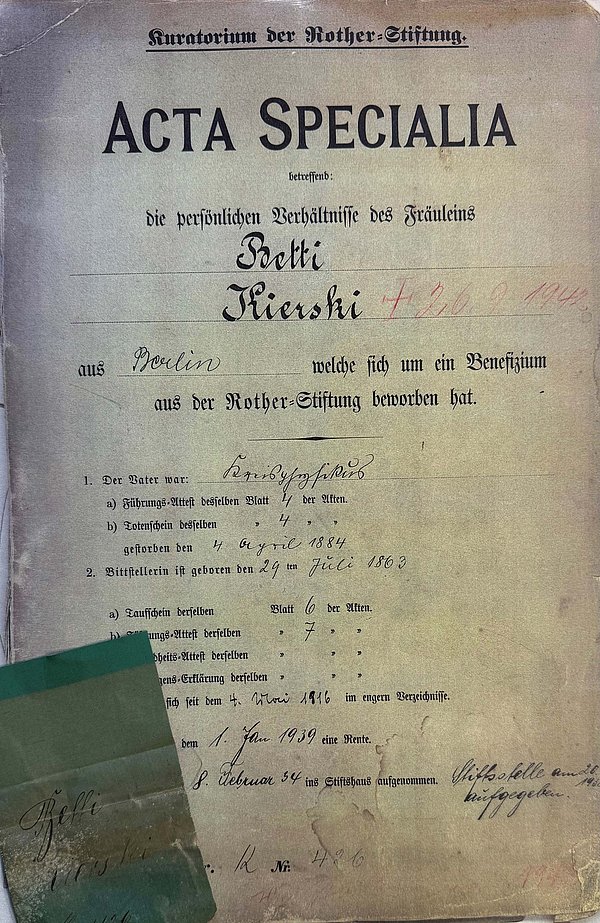 Kuratorium der Rother=Stiftung.
ACTA SPECIALIA
betreffend:
die persönlichen Verhältnisse des Fräuleins
Betti
Kierski
aus Berlin welche sich um ein Benefizium
aus der Rother=Stiftung beworben hat.
1. Der Vater war: Kreisphysikus
a) Führungs=Attest desselben Blatt 4 der Akten.
b) Totenschein desselben " 4 " "
gestorben den 4 April 1884
2. Bittstellerin ist geboren den 29 ten Juli 1863
a) Taufschein derselben Blatt 6 der Akten.
b) ungs=Attest derselben " 7 " "
dheits=Attest derselben " " "
gens=Erklärung derselben " " "
sich seit dem 4. Mai 1916 im engern Verzeichnisse.
dem 1. Jan 1939 eine Rente.
8. Februar 34 ins Stiftshaus aufgenommen. Stiftsstelle am
aufgegeben.
K Nr. 426
Betti